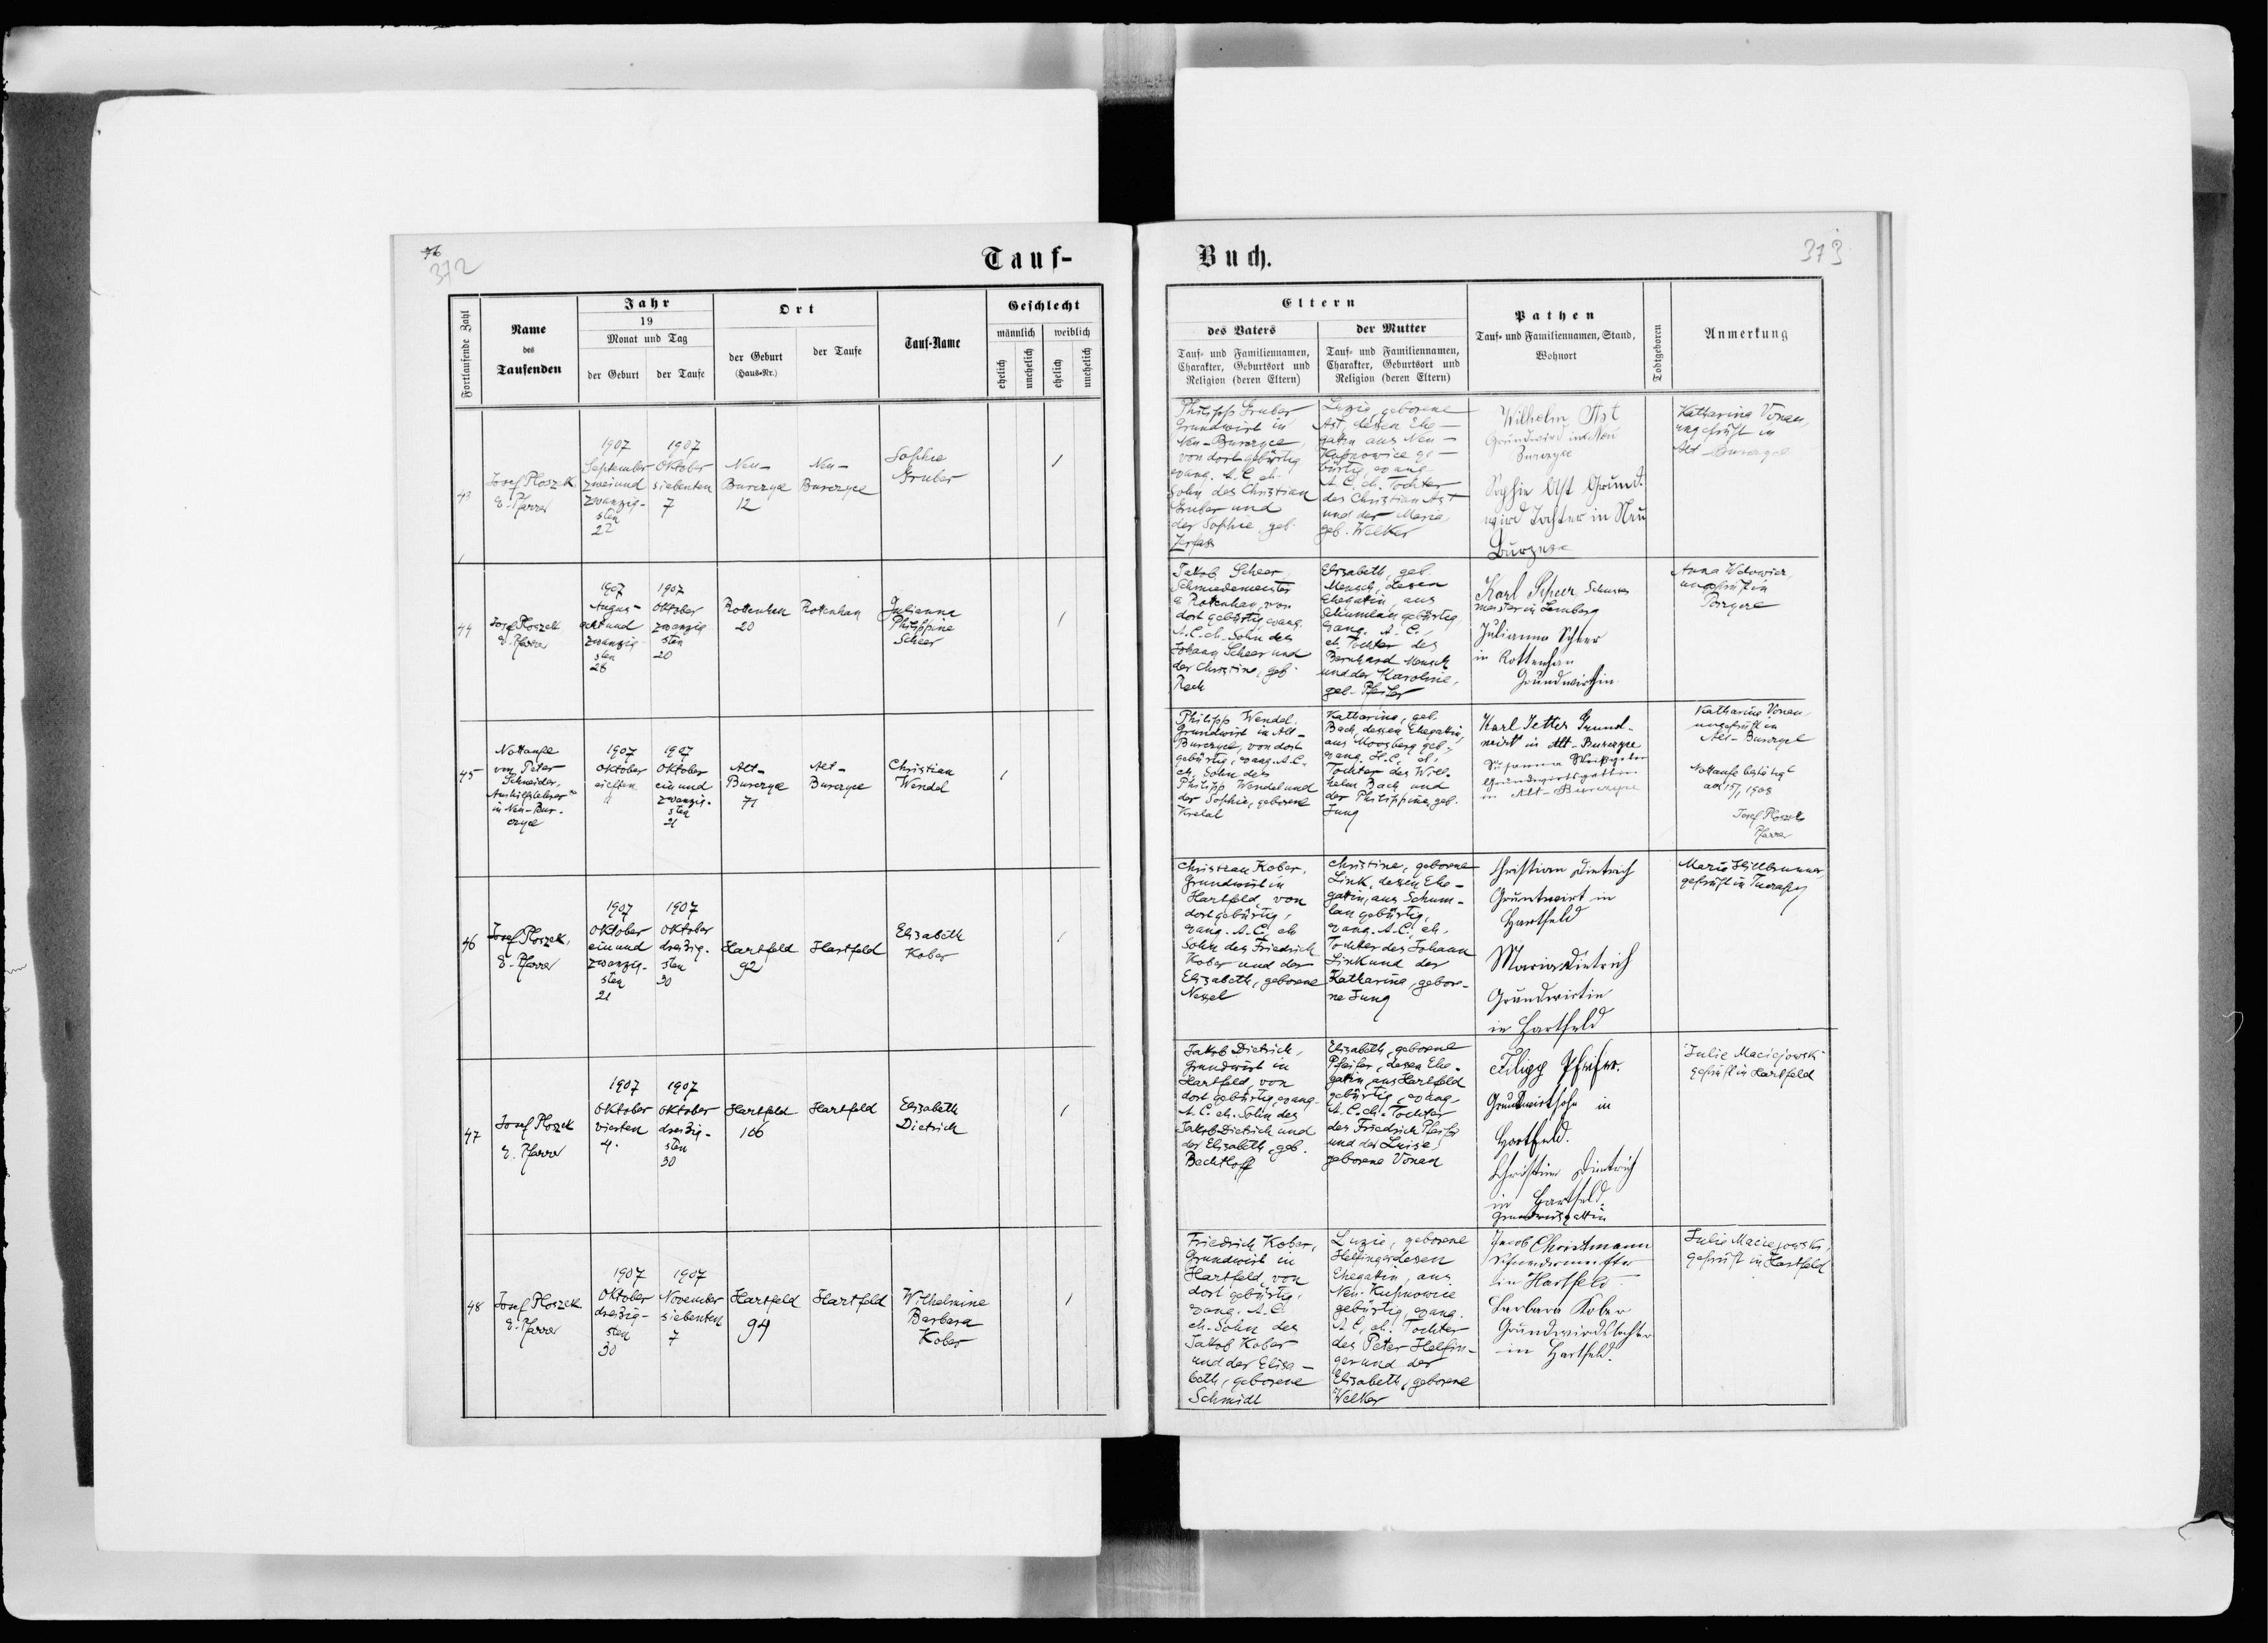 372
Tauf-
Fortlaufende Zahl
Name
des
Taufenden
Jahr
19
Monat und Tag
der Geburt
der Taufe
Ort
der Geburt
(Haus-Nr.)
der Taufe
Tauf-Name
Geschlecht
männlich
weiblich
ehelich
unehelich
ehelich
unehelich
43
Josef Ploszek
E. Pfarrer
1907
September
zweiund
zwanzig-
sten
22
1907
Oktober
siebenten
7
Neu-
Burczyce
12
Neu-
Burczyce
Sophie
Gruber
44
Josef Ploszek
E. Pfarrer
1907
August
acht und
zwanzig
sten
28
1907
Oktober
zwanzig
sten
20
Rottenhan
20
Rottenhan
Julianna
Philippine
Scheer
45
Nottaufe
von Peter
Schneider,
Aushilfslehrer
in Neu-Bur-
czyce
1907
Oktober
elften
11
1907
Oktober
ein und
zwanzig-
sten
21
Alt-
Burczyce
71
Alt-
Burczyce
Christian
Wendel
46
Josef Ploszek,
E. Pfarrer
1907
Oktober
ein und
zwanzig-
sten
21
1907
Oktober
dreißig-
sten
30
Hartfeld
92
Hartfeld
Elisabeth
Kober
47
Josef Ploszek
E. Pfarrer
1907
Oktober
vierten
4.
1907
Oktober
dreißig-
sten
30
Hartfeld
166
Hartfeld
Elisabeth
Dietrich
48
Josef Ploszek
E. Pfarrer
1907
Oktober
dreißig-
sten
30
1907
November
siebenten
7
Hartfeld
94
Hartfeld
Wilhelmine
Barbara
Kober
Buch.
373
Eltern
des Vaters
Tauf- und Familiennamen,
Charakter, Geburtsort und
Religion (deren Eltern)
der Mutter
Tauf- und Familiennamen,
Charakter, Geburtsort und
Religion (deren Eltern)
Pathen
Tauf- und Familiennamen, Stand,
Wohnort
Todtgeboren
Anmerkung
Philipp Gruber
Grundwirt in
Neu-Burczyce,
von dort gebürtig
evang. A. C. eh.
Sohn des Christian
Gruber und
der Sophie, geb.
Luzie, geborene
Ast, dessen Ehe-
gatin aus Neu-
Kupnowice ge-
bürtig, evang.
A. C. eh. Tochter
des Christian Ast
und der Maria,
geb. Welker
Wilhelm Ast
Grundwird in Neu
Burczyce
Sophie Ast Grund-
wird Tochter in Neu
Burczyce
Katharina Vonau,
ungeprüft in
Alt Burczyce
Jakob Scheer
Schmiedemeister
in Rottenhan, von
dort gebürtig, evang.
A. C. eh. Sohn des
Johann Scheer und
der Christine, geb.
Rech
Elisabeth, geb.
Mensch, dessen
Ehegattin, aus
Schumlau gebürtig,
evang. A. C.,
eh. Tochter des
Bernhard Mensch
und der Karoline,
geb. Pfeifer
Karl Scheer, Schmiede
meister in Lemberg
Julianna Scheer
in Rottenhan
Grundwirthin
Anna
ungeprüft in
Philipp Wendel,
Grundwirt in Alt-
Burczyce, von dort
gebürtig, evang. A. C.
eh. Sohn des
Philipp Wendel und
der Sophie, geborene
Katharina, geb.
Bach, dessen Ehegattin,
aus Moosberg geb.,
evang. H. C. eh.
Tochter des Wil-
helm Bach und
der Philippina, geb.
Jung
Karl Jetter Grund-
wirt in Alt-Burczyce
Susanna
Grundwirtsgattin
in Alt-Burczyce
Katharina Vonau
ungeprüft in
Alt-Burczyce
Nottaufe bestätigt
am 15/1 1908
Josef Ploszek
Pfarrer
Christian Kober,
Grundwirt in
Hartfeld, von
dort gebürtig,
evang. A. C. eh.
Sohn des Friedrich
Kober und der
Elisabeth, geborene
Nessel
Christine, geborene
Link, dessen Ehe-
gattin, aus Schum-
lau gebürtig,
evang. A. C. eh.
Tochter des Johann
Link und der
Katharina, gebore-
ne Jung
Christian Dietrich
Gruntwirt in
Hartfeld
Maria Dietrich
Grundwirtin
in Hartfeld
Maria
geprüft in
Jakob Dietrich,
Grundwirt in
Hartfeld, von
dort gebürtig, evang.
A. C. eh. Sohn des
Jakob Dietrich und
der Elisabeth, geb.
Bechtloff
Elisabeth, geborene
Pfeifer, dessen Ehe-
gattin, aus Hartfeld
gebürtig, evang.
A. C. eh. Tochter
des Friedrich Pfeifer
und der Luise,
geborene Vonau
Filipp Pfeifer.
Grundwirtsohn in
Hartfeld.
Christine Dietrich
in Hartfeld.
Grundwirtsgattin
Julie Maciejowski
geprüft in Hartfeld
Friedrich Kober,
Grundwirt in
Hartfeld, von
dort gebürtig,
evang. A. C.
eh. Sohn des
Jakob Kober
und der Elisa-
beth, geborene
Schmidt
Luzie, geborene
Helfinger dessen
Ehegattin, aus
Neu-Kupnowice
gebürtig, evang.
A. C. eh. Tochter
des Peter Helfin-
ger und der
Elisabeth, geborene
Welker
Jacob Christmann
in Hartfeld
Barbara Kober
Grundwirdstochter
in Hartfeld.
Julie Maciejowski,
geprüft in Hartfeld